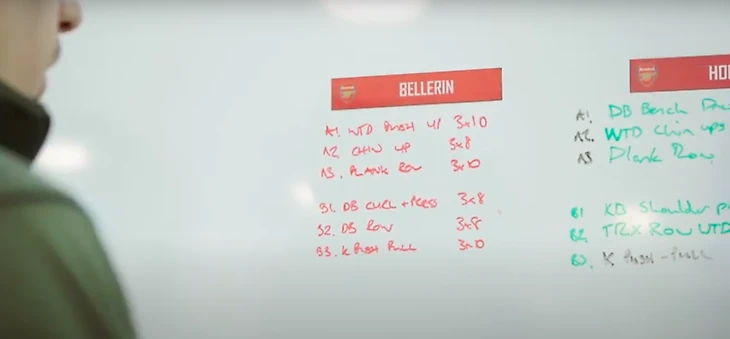 BELLERIN
A1. WTD PUSH UP 3x10
A2. CHIN UP 3x8
A3. PLANK ROW 3x10
B1. DB CURL + PRESS 3x8
B2. DB ROW 3x8
B3. K PUSH PULL 3x10
HO
A1. DB Bench
A2. WTD Chin ups
A3 Plank Row
B1 KB Shoulder
B2. TRX Row WTD
B3. K PUSH-PULL